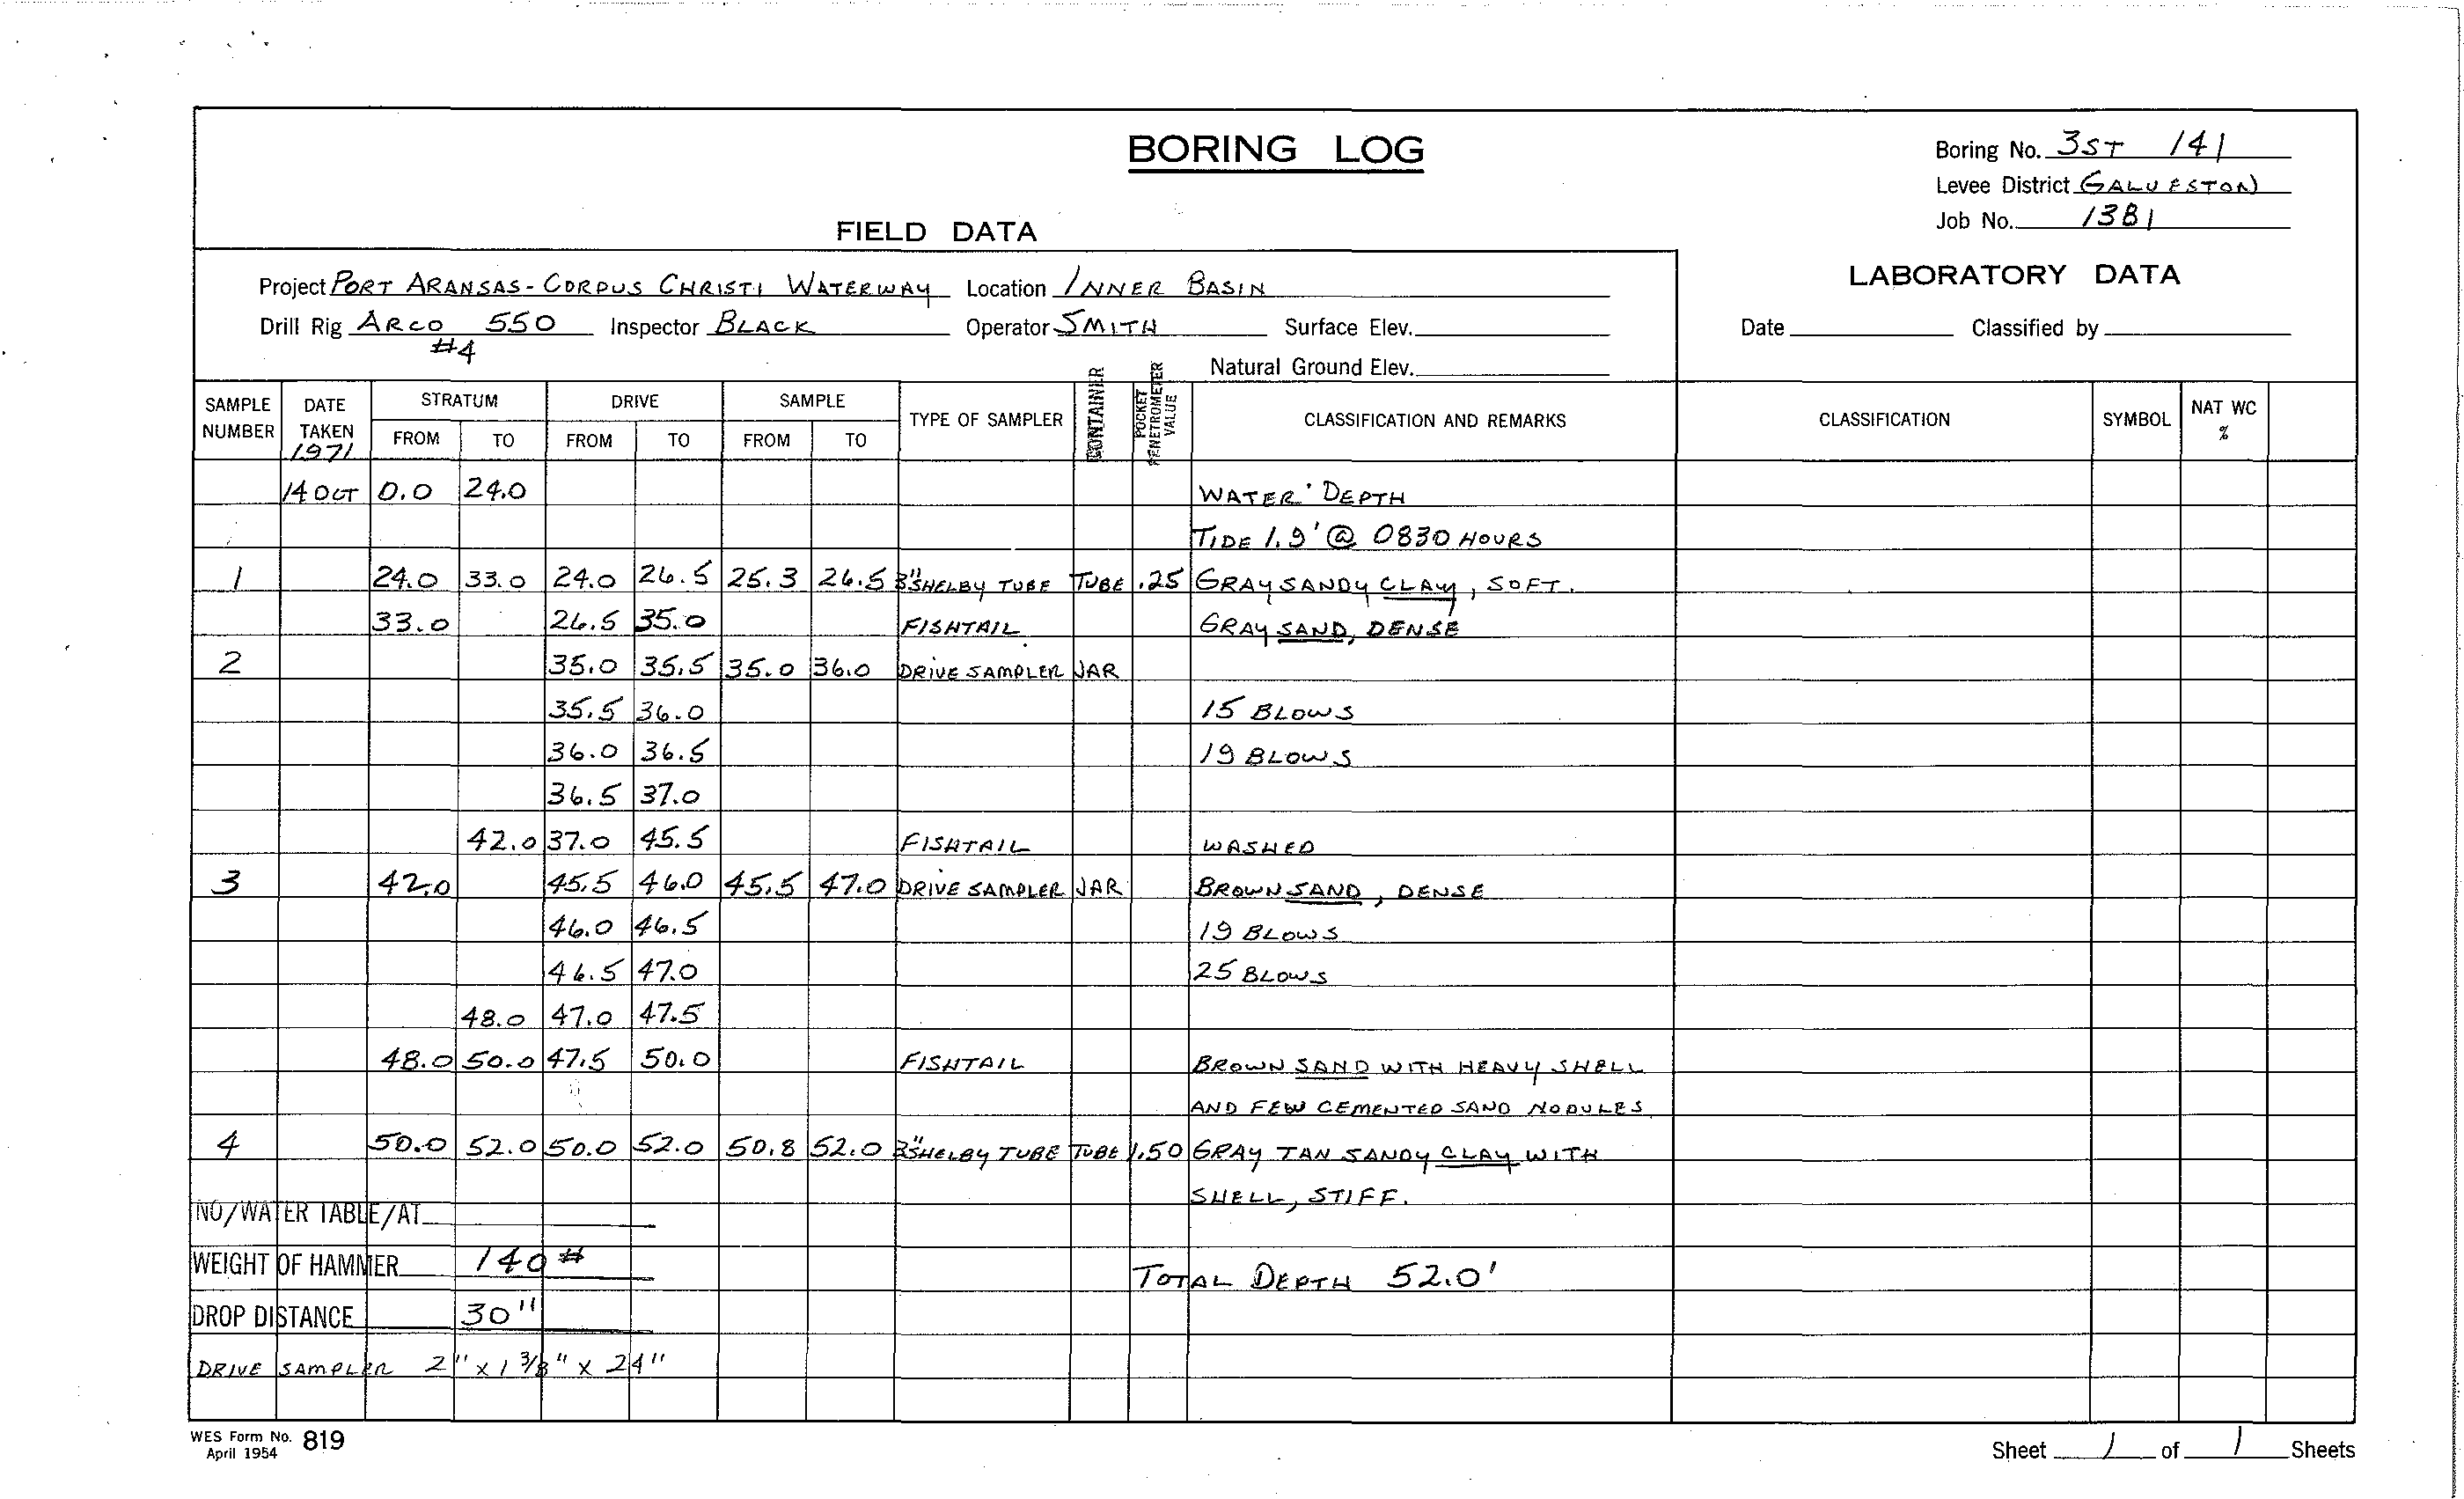 BORING LOG
Boring No. 3ST 141
Levee District GALVESTON
Job No. 1381
FIELD DATA
LABORATORY DATA
Project PORT ARANSAS - CORPUS CHRISTI WATERWAY Location INNER BASIN
Drill Rig ARCO 550 Inspector BLACK Operator SMITH Surface Elev.
Date Classified by
#4
Natural Ground Elev.
SAMPLE NUMBER DATE TAKEN 1971 STRATUM FROM TO DRIVE FROM TO SAMPLE FROM TO TYPE OF SAMPLER CONTAINER POCKET PENETROMETER VALUE CLASSIFICATION AND REMARKS CLASSIFICATION SYMBOL NAT WC %
14 OCT 0.0 24.0 WATER DEPTH
TIDE 1.9' @ 0830 HOURS
1 24.0 33.0 24.0 26.5 25.3 26.5 3" SHELBY TUBE TUBE .25 GRAY SANDY CLAY, SOFT.
33.0 26.5 35.0 FISHTAIL GRAY SAND, DENSE
2 35.0 35.5 35.0 36.0 DRIVE SAMPLER JAR
35.5 36.0 15 BLOWS
36.0 36.5 19 BLOWS
36.5 37.0
42.0 37.0 45.5 FISHTAIL WASHED
3 42.0 45.5 46.0 45.5 47.0 DRIVE SAMPLER JAR BROWN SAND, DENSE
46.0 46.5 19 BLOWS
46.5 47.0 25 BLOWS
48.0 47.0 47.5
48.0 50.0 47.5 50.0 FISHTAIL BROWN SAND WITH HEAVY SHELL
AND FEW CEMENTED SAND NODULES
4 50.0 52.0 50.0 52.0 50.8 52.0 3" SHELBY TUBE TUBE 1.50 GRAY TAN SANDY CLAY WITH
SHELL, STIFF.
NO/WATER TABLE/AT
WEIGHT OF HAMMER 140#
TOTAL DEPTH 52.0'
DROP DISTANCE 30"
DRIVE SAMPLER 2" x 1 3/8" x 24"
WES Form No. 819
April 1954
Sheet 1 of 1 Sheets